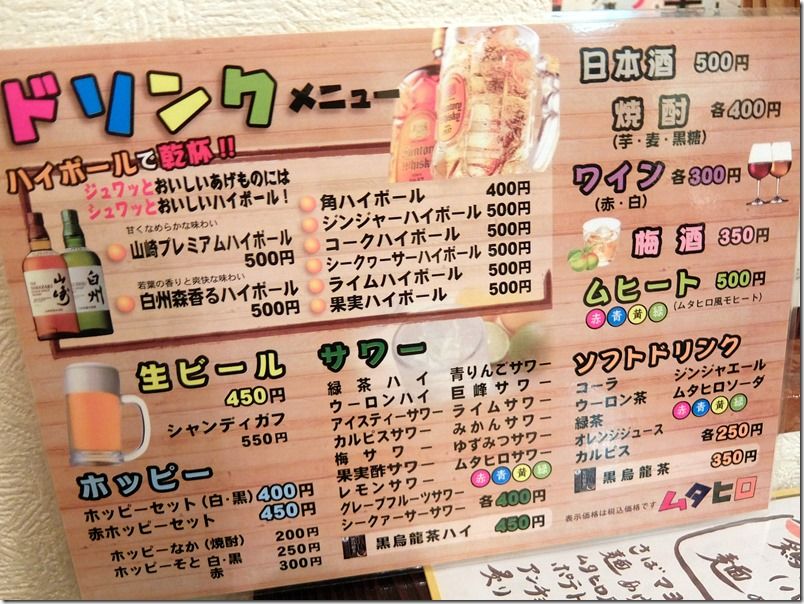 ドリンクメニュー
ハイボールで乾杯!!
ジュワッとおいしいあげものには
シュワッとおいしいハイボール!
甘くなめらかな味わい
山崎プレミアムハイボール
500円
若葉の香りと爽快な味わい
白州森香るハイボール
500円
山崎
白州
角ハイボール 400円
ジンジャーハイボール 500円
コークハイボール 500円
シークヮーサーハイボール 500円
ライムハイボール 500円
果実ハイボール 500円
生ビール
450円
シャンディガフ
550円
ホッピー
ホッピーセット(白・黒) 400円
赤ホッピーセット 450円
ホッピーなか(焼酎) 200円
ホッピーそと 白・黒 250円
赤 300円
サワー
緑茶ハイ
ウーロンハイ
アイスティーサワー
カルピスサワー
梅サワー
果実酢サワー
レモンサワー
グレープフルーツサワー
シークアーサーサワー
青りんごサワー
巨峰サワー
ライムサワー
みかんサワー
ゆずみつサワー
ムタヒロサワー
赤青黄緑
各400円
黒烏龍茶ハイ 450円
日本酒 500円
焼酎 各400円
(芋・麦・黒糖)
ワイン 各300円
(赤・白)
梅酒 350円
ムヒート 500円
赤青黄緑 (ムタヒロ風モヒート)
ソフトドリンク
コーラ
ウーロン茶
緑茶
オレンジジュース
カルピス
ジンジャエール
ムタヒロソーダ
赤青黄緑
各250円
黒烏龍茶 350円
表示価格は税込価格です
ムタヒロ